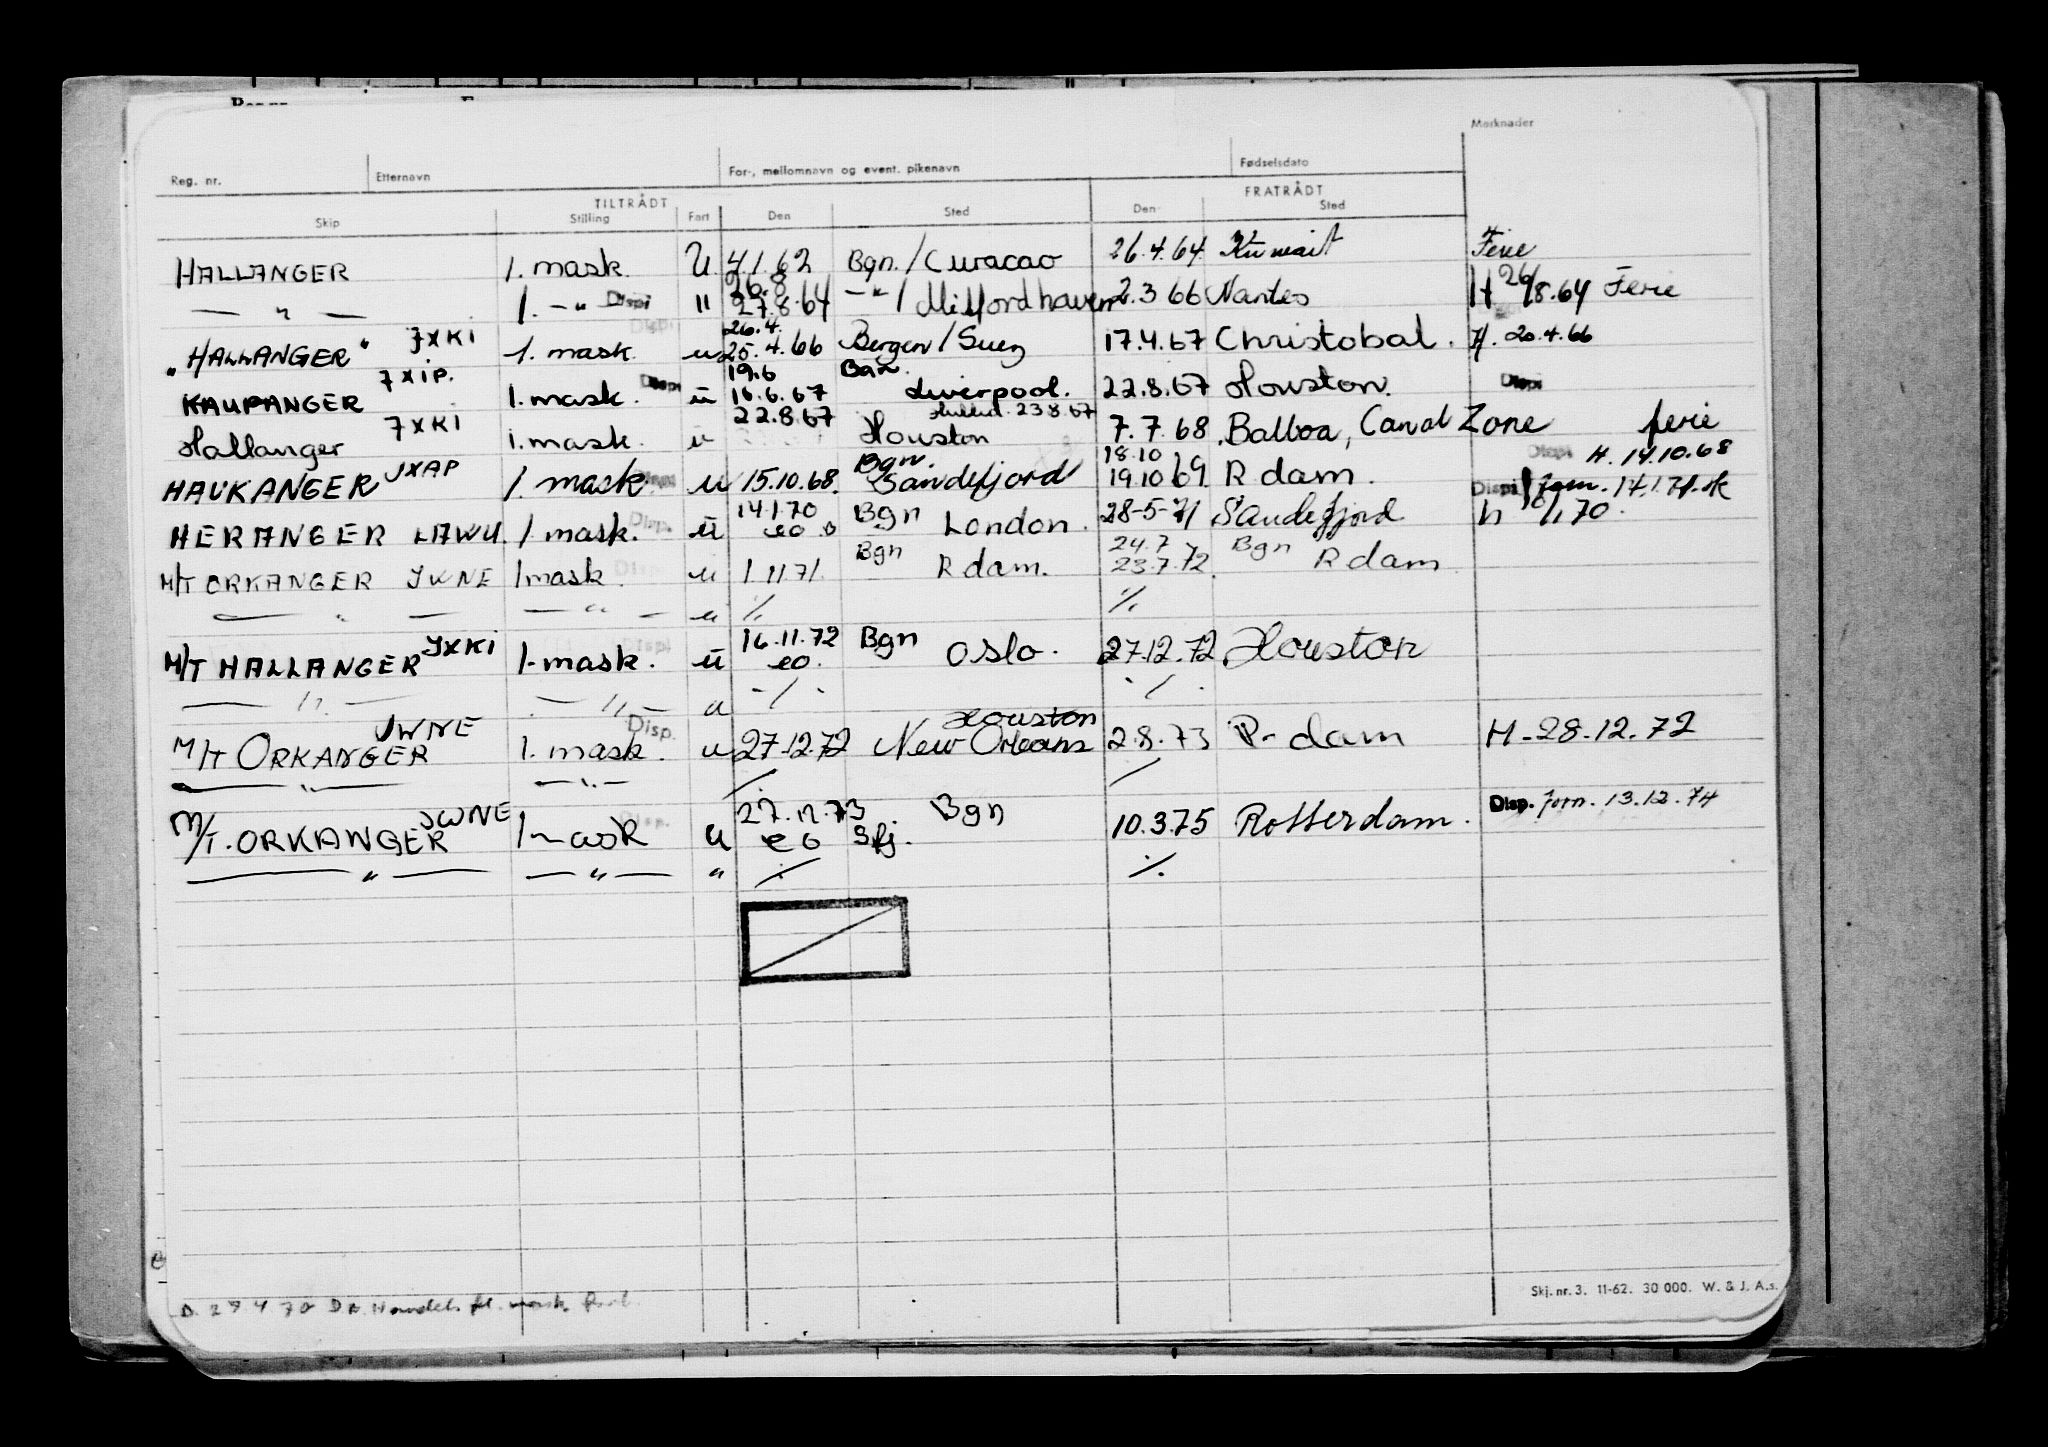 Merknader
Reg. nr. Etternavn For-, mellomnavn og event. pikenavn Fødselsdato
TILTRÅDT FRATRÅDT
Skip Stilling Fart Den Sted Den Sted
HALLANGER 1. mask. U 4.1.62 Bgn. / Curacao 26.4.64 Kuwait Ferie
— " — 1. -"- Dispi " 26.8 27.8.64 -"- / Milfordhaven 2.3 66 Nantes H 26/8.64 Ferie
"HALLANGER" JXKI 1. mask. u 26.4. 25.4.66 Bergen / Suez 17.4.67 Christobal. H. 20.4.66
KAUPANGER JXIP. 1. mask. Dispi u 19.6 16.6.67 Liverpool. 22.8.67 Houston. Dispi
Hallanger JXKI 1. mask. u 22.8.67 Houston 23 8.67 7.7.68 Balboa, Canal Zone ferie
HAUKANGER JXAP 1. mask. u 15.10.68. Bgn. Sandefjord 18.10 19.10 69. R dam. Dispi H. 14.10.68
HERANGER LAWU. 1 mask. Disp. u 14.1.70 eo Bgn London. 28-5-71 Sandefjord Dispi 14.1.71 h 70.
M/T ORKANGER JWNE 1 mask. u 1.11.71. Bgn R dam. 24.7 23.7.72. Bgn R dam
— " — — " — u ./. ./.
M/T HALLANGER JXKI 1. mask. u 16.11.72 eo. Bgn Oslo. 27.12.72 Houston
— " — — " — u ./. ./.
M/T ORKANGER JWNE 1. mask. Disp. u 27.12.72 Houston New Orleans 2.8.73 R-dam H. 28.12.72
— " — — " — ./. ./.
M/T. ORKANGER JWNE 1 mask Disp. u 27.11.73. eo Bgn Sfj. 10.3.75 Rotterdam. Disp. forn. 13.12.74
— " — — " — " ./. ./.
Skj. nr. 3. 11-62. 30 000. W. & J. A.s.